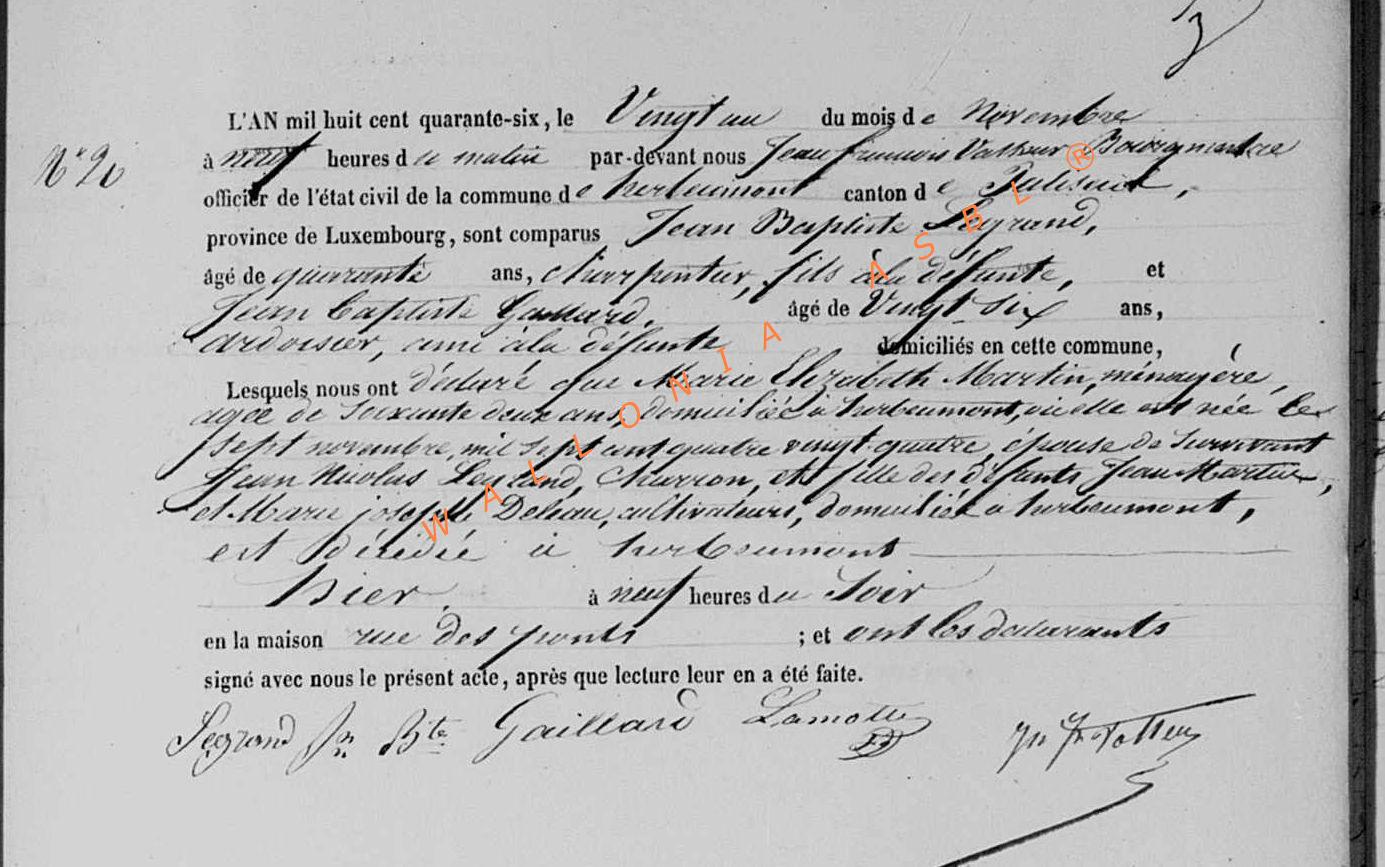 3
L'AN mil huit cent quarante-six, le Vingt un du mois de Novembre
N° 20
à neuf heures du matin par-devant nous Jean françois Bourgmestre
officier de l'état civil de la commune de herbeumont canton de Paliseul,
province de Luxembourg, sont comparus Jean Baptiste Legrand,
âgé de quarante ans, charpentier, fils à la défunte, et
Jean baptiste Gaillard, âgé de Vingt-six ans,
ardoisier, ami à la défunte domiciliés en cette commune,
Lesquels nous ont déclaré que Marie Elizabeth Martin, ménagère,
agée de soixante deux ans, domiciliée à herbeumont, où elle est née le
sept novembre, mil sept cent quatre vingt-quatre, épouse de survivant
Jean Nicolas Legrand, Charron, et fille des défunts Jean Martin,
et Marie josephe cultivateurs, domiciliés à herbeumont,
est décédée à herbeumont
hier à neuf heures du Soir
en la maison rue des ponts ; et ont les déclarants
signé avec nous le présent acte, après que lecture leur en a été faite.
Legrand Jn Bte Gaillard Lamotte
WALLONIA ASBL ®